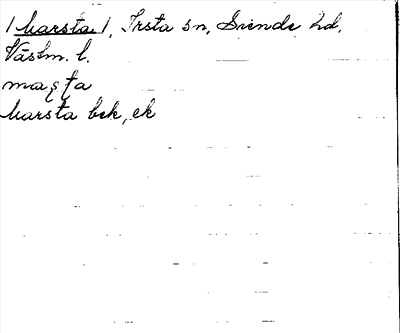 / Marsta /, Irsta sn, Siende hd,
Västm. l.
maʂʈa
Marsta bek, ek